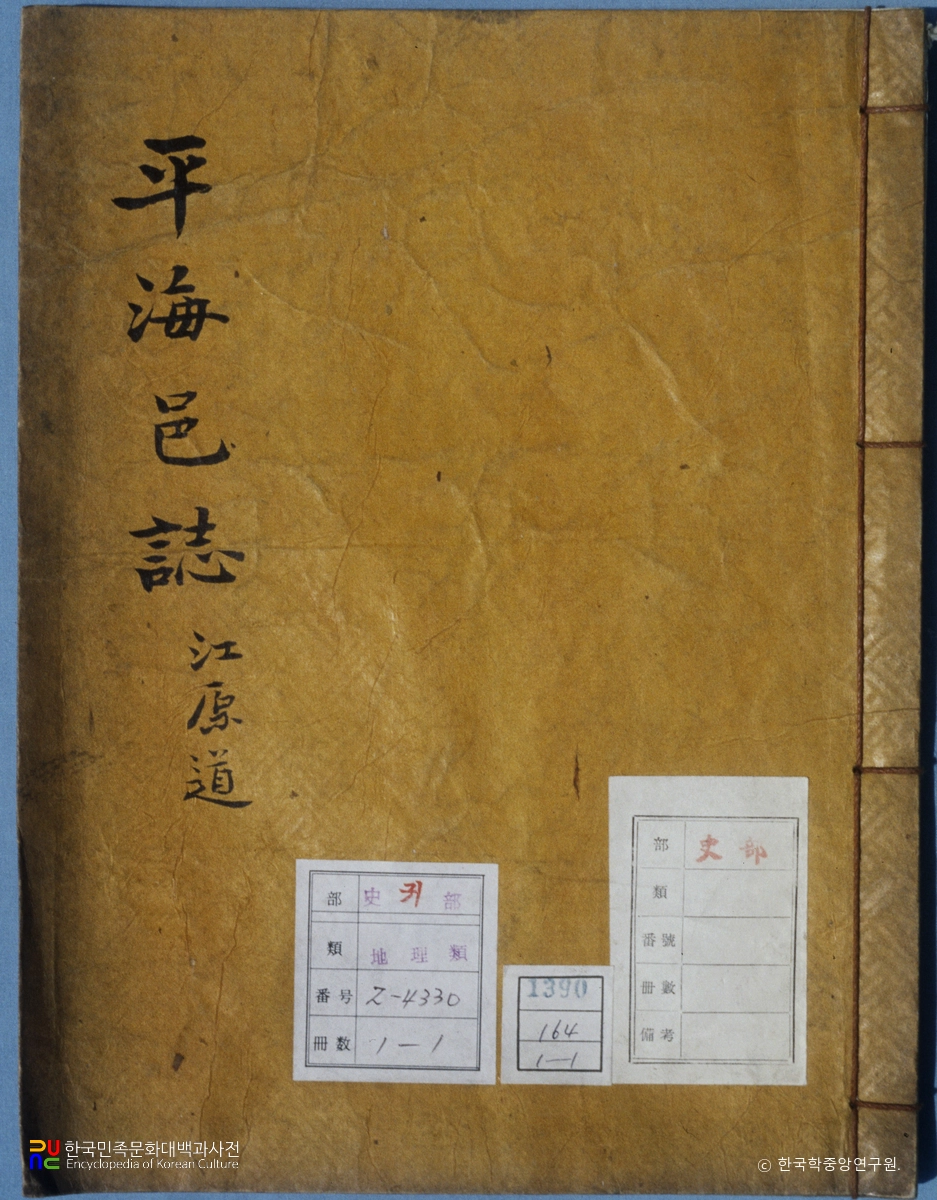 平海邑誌 江原道
部 史 귀 部
類 地理類
番号 Z-4330
冊数 1-1
1390
164
1-1
部 史部
類
番號
冊數
備考
한국민족문화대백과사전
Encyclopedia of Korean Culture
© 한국학중앙연구원.